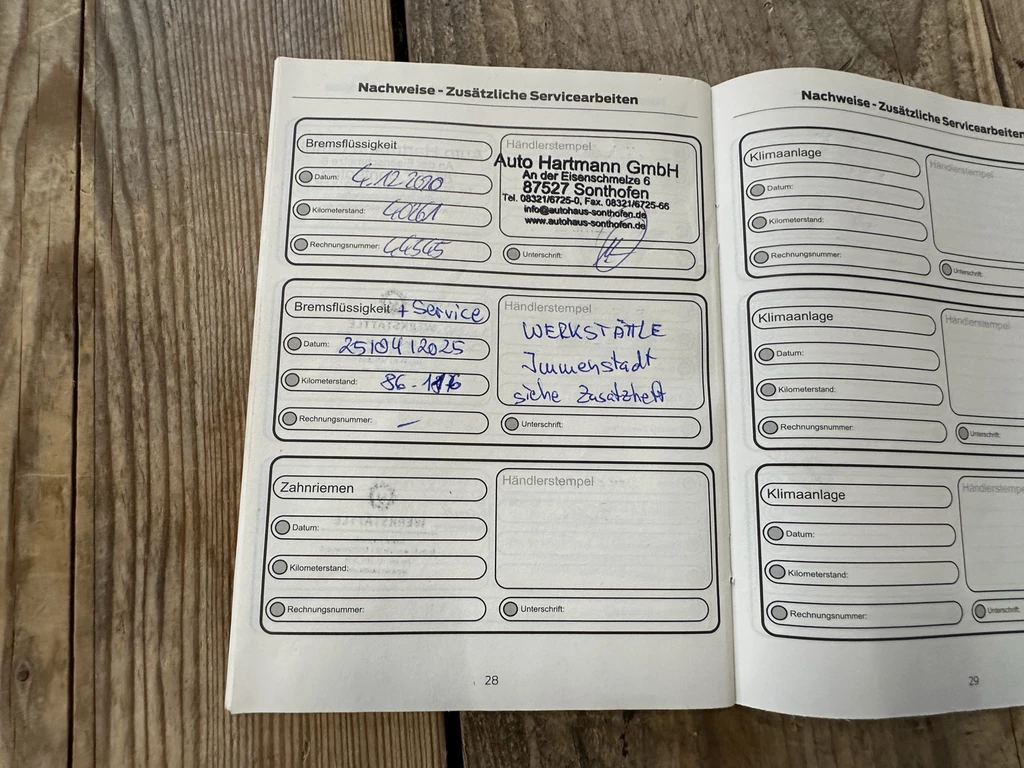 Nachweise - Zusätzliche Servicearbeiten
Bremsflüssigkeit
Datum: 4.12.2020
Kilometerstand: 40261
Rechnungsnummer: 44545
Händlerstempel
Auto Hartmann GmbH
An der Eisenschmelze 6
87527 Sonthofen
Tel. 08321/6725-0, Fax. 08321/6725-66
info@autohaus-sonthofen.de
www.autohaus-sonthofen.de
Unterschrift:
Bremsflüssigkeit + Service
Datum: 25/04/2025
Kilometerstand: 86.
Rechnungsnummer: —
Händlerstempel
WERKSTÄTTLE
Immenstadt
siehe Zusatzheft
Unterschrift:
Zahnriemen
Datum:
Kilometerstand:
Rechnungsnummer:
Händlerstempel
Unterschrift:
28
Nachweise - Zusätzliche Servicearbeiten
Klimaanlage
Datum:
Kilometerstand:
Rechnungsnummer:
Händlerstempel
Unterschrift:
Klimaanlage
Datum:
Kilometerstand:
Rechnungsnummer:
Händlerstempel
Unterschrift:
Klimaanlage
Datum:
Kilometerstand:
Rechnungsnummer:
Händlerstempel
Unterschrift:
29